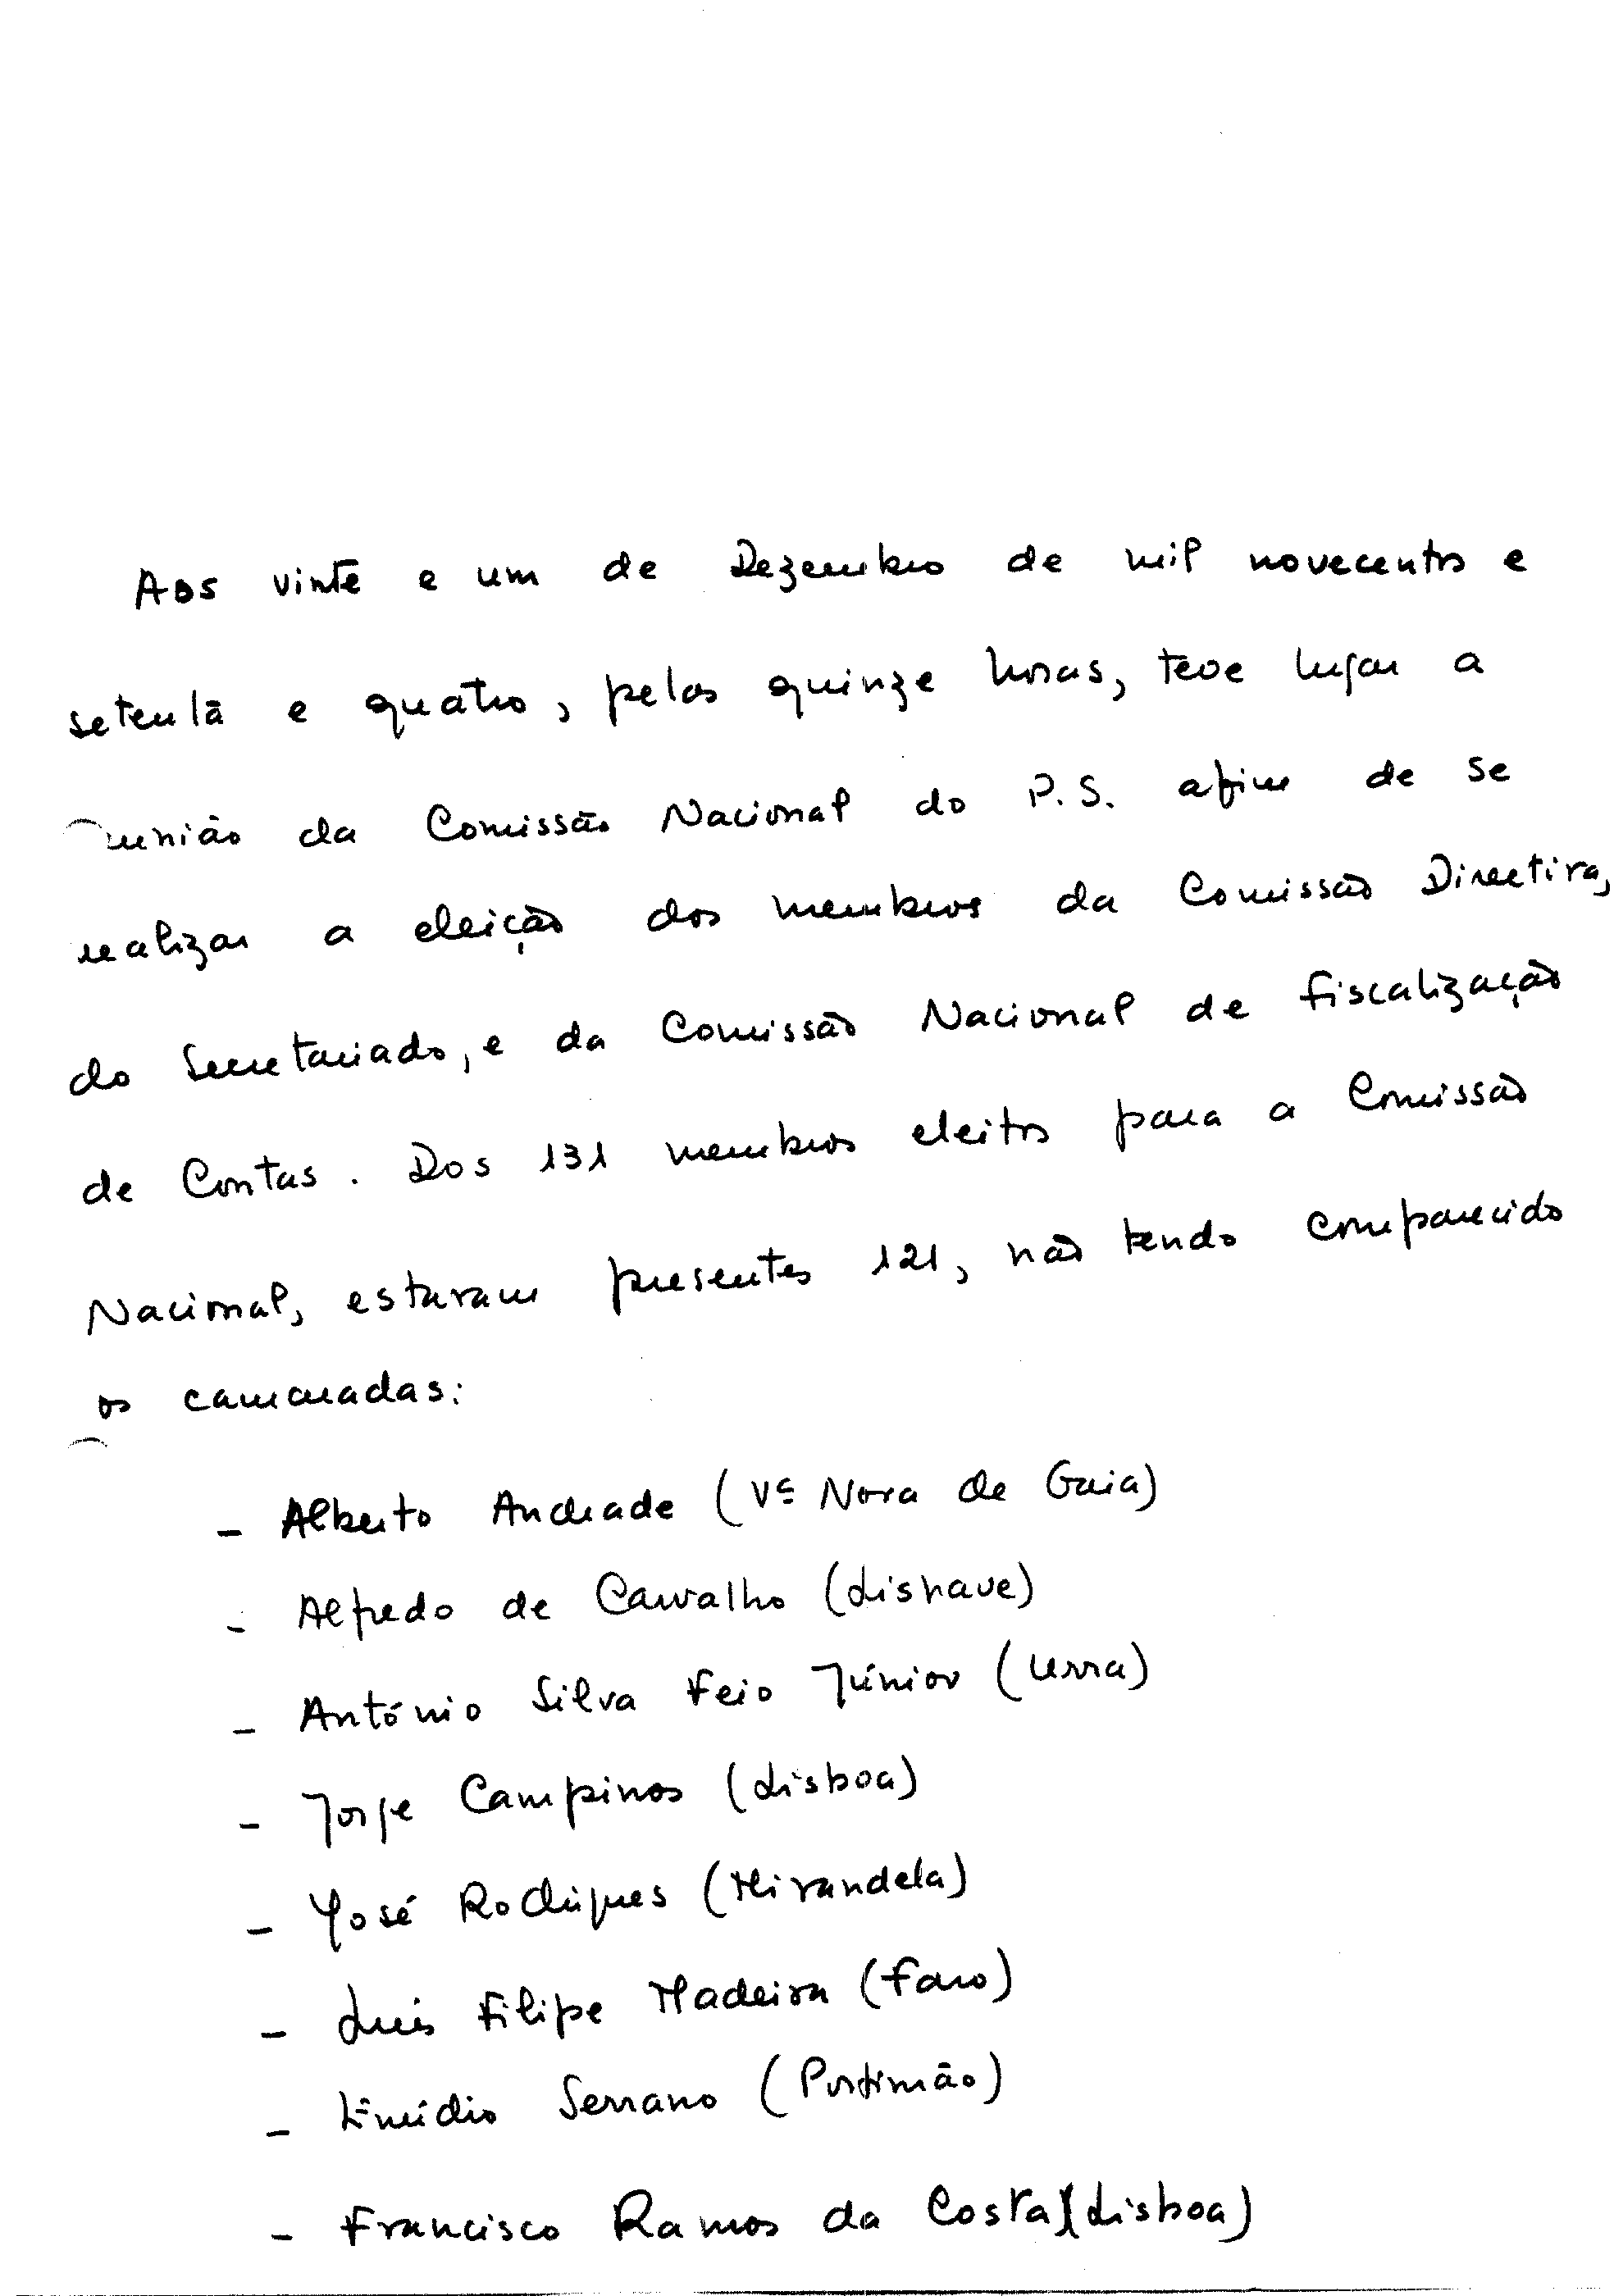 Aos vinte e um de Dezembro de mil novecentos e
setenta e quatro, pelas quinze horas, teve lugar a
reunião da Comissão Nacional do P.S. afim de se
realizar a eleição dos membros da Comissão Directiva,
do Secretariado, e da Comissão Nacional de Fiscalização
de Contas. Dos 131 membros eleitos para a Comissão
Nacional, estavam presentes 121, não tendo comparecido
os camaradas:
- Alberto Andrade (Vª Nova de Gaia)
- Alfredo de Carvalho (Lisnave)
- António Silva Feio Júnior (Urra)
- Jorge Campinos (Lisboa)
- José Rodrigues (Mirandela)
- Luís Filipe Madeira (Faro)
- Emídio Serrano (Portimão)
- Francisco Ramos da Costa (Lisboa)